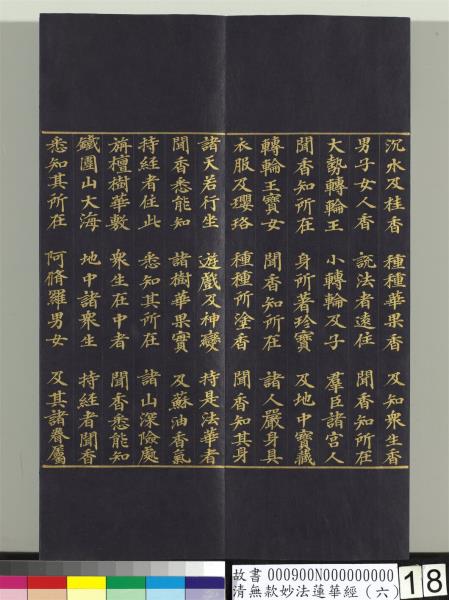 沉水及桂香 種種華果香 及知衆生香
男子女人香 說法者遠住 聞香知所在
大勢轉輪王 小轉輪及子 羣臣諸宮人
聞香知所在 身所著珍寶 及地中寶藏
轉輪王寶女 聞香知所在 諸人嚴身具
衣服及瓔珞 種種所塗香 聞香知其身
諸天若行坐 遊戲及神變 持是法華者
聞香悉能知 諸樹華果實 及蘇油香氣
持經者住此 悉知其所在 諸山深險處
旃檀樹華敷 衆生在中者 聞香悉能知
鐵圍山大海 地中諸衆生 持經者聞香
悉知其所在 阿脩羅男女 及其諸眷屬
故書 000900N000000000
清無款妙法蓮華經（六）
18